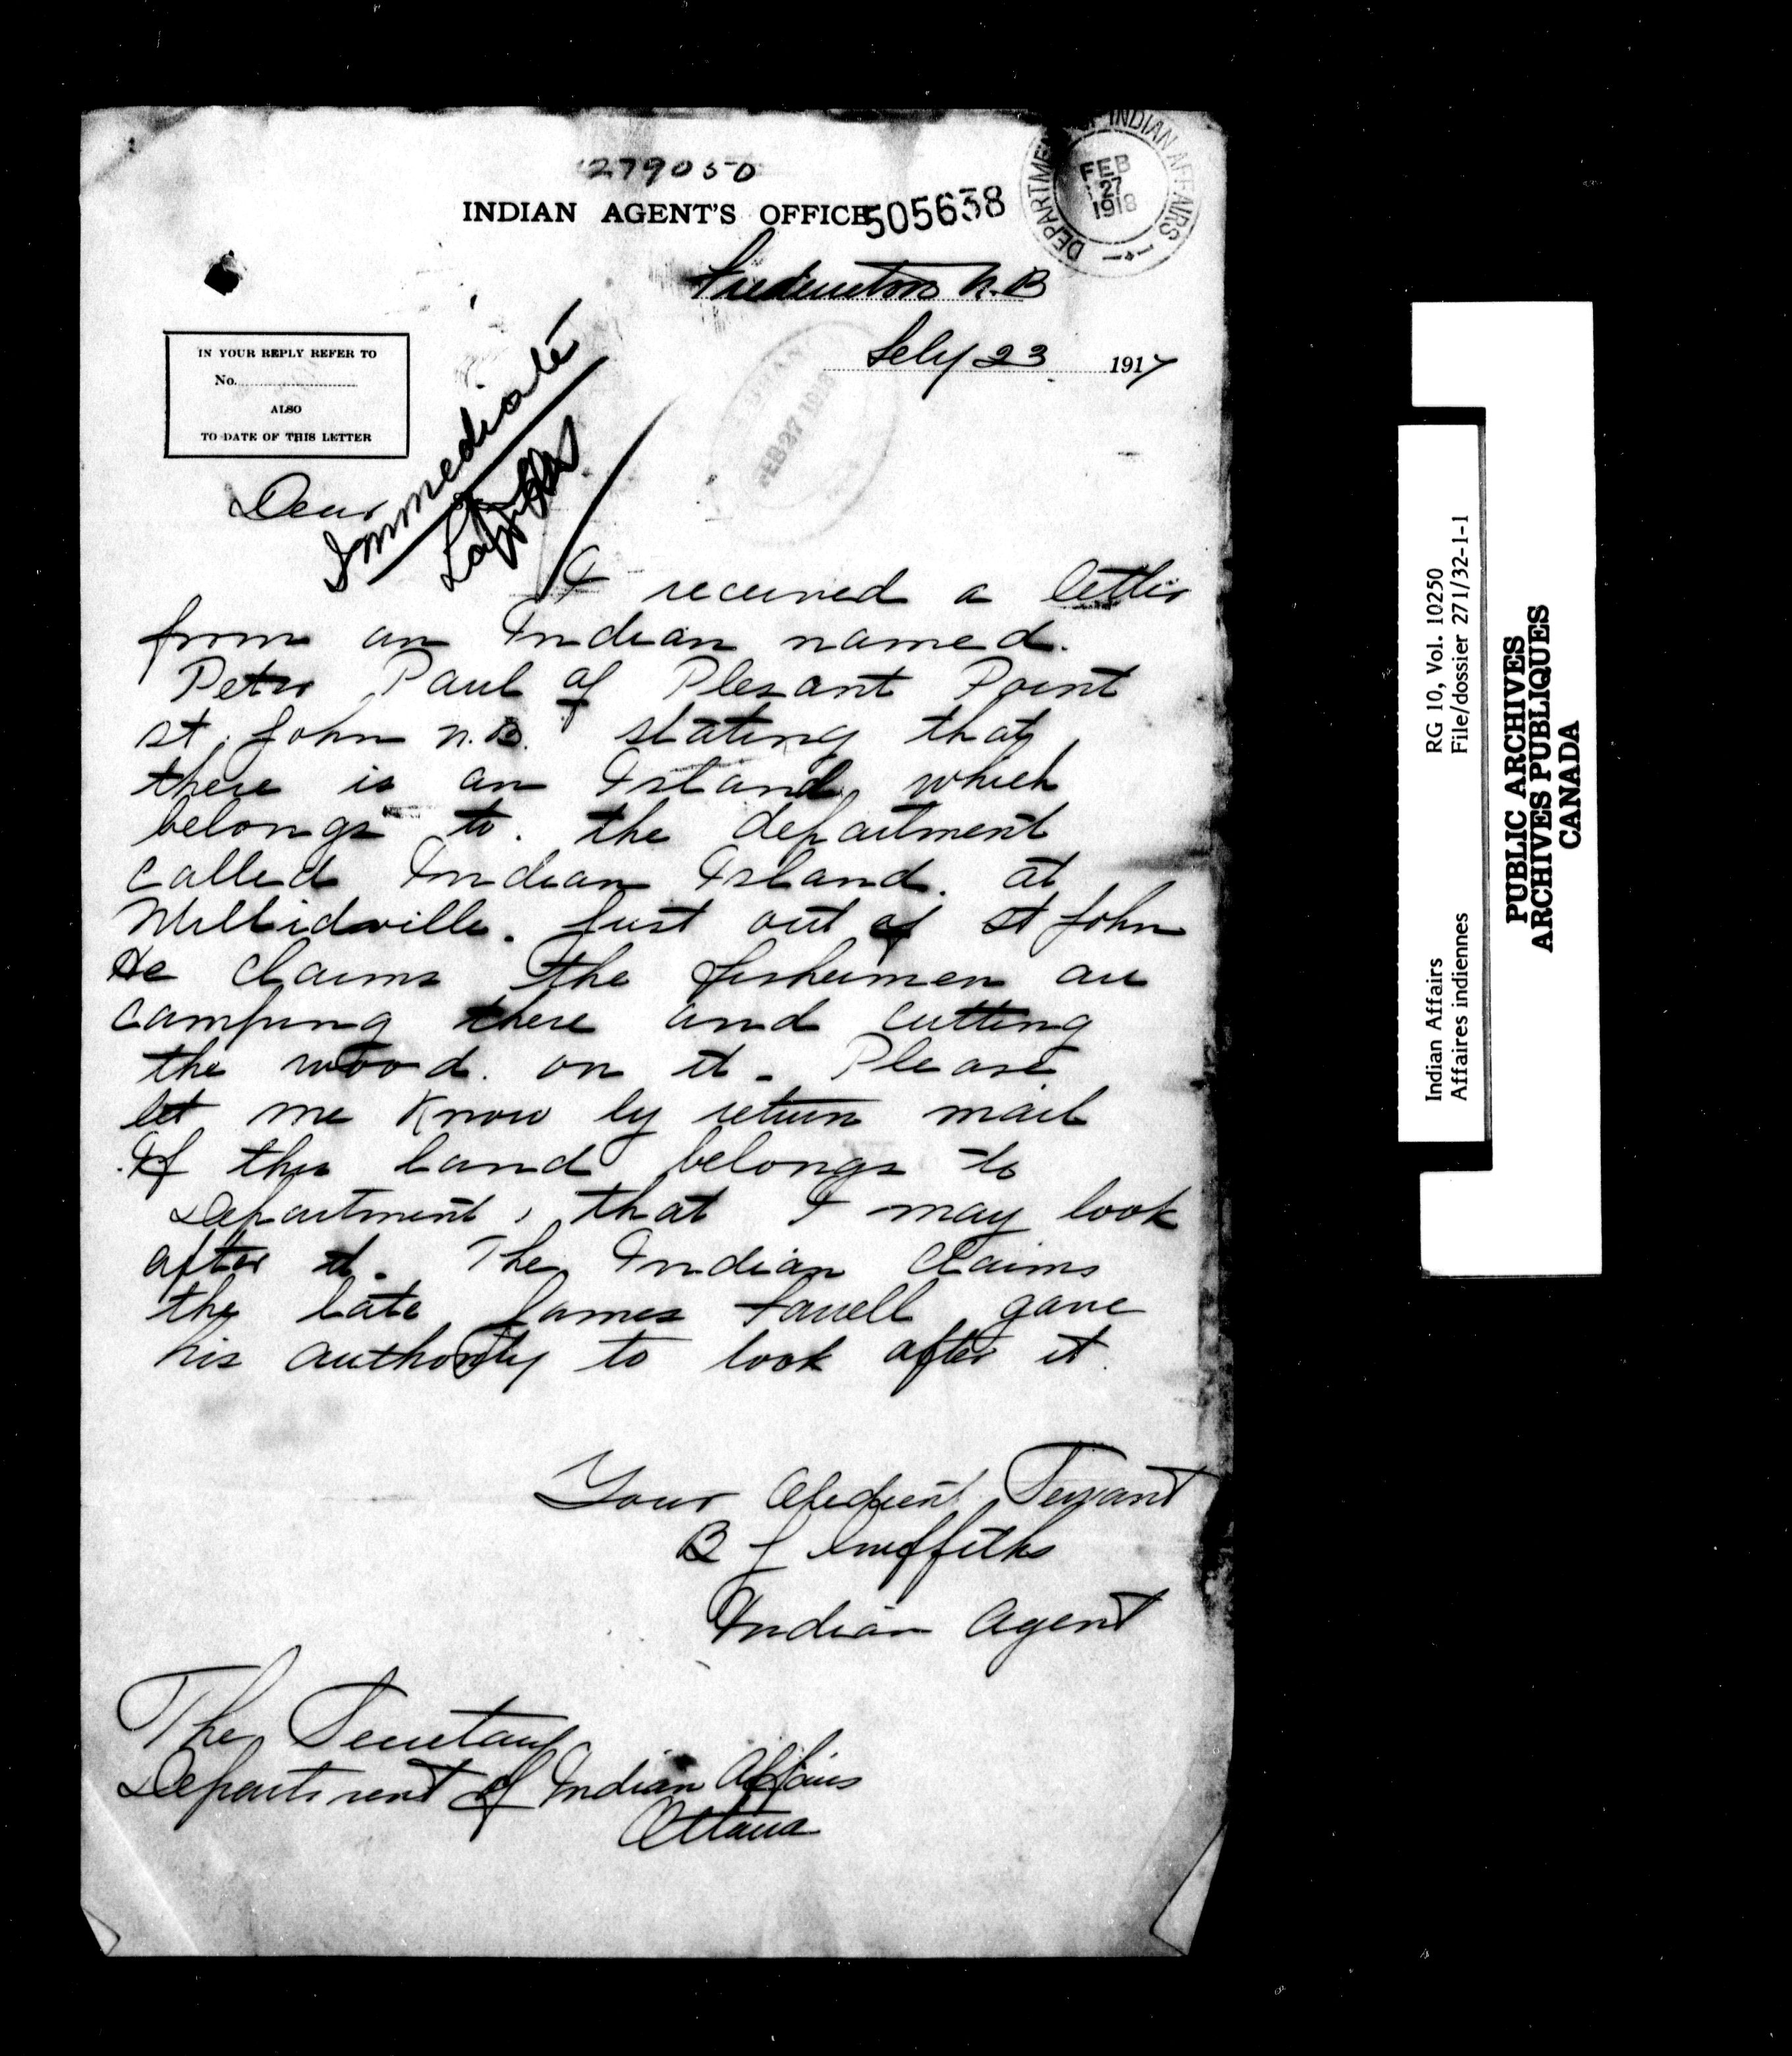 279050
INDIAN AGENT'S OFFICE 505638
DEPARTMENT OF INDIAN AFFAIRS
FEB
27
1918
Fredericton N.B
Feby 23 1917
FEB 27 1918
IN YOUR REPLY REFER TO
No.
ALSO
TO DATE OF THIS LETTER
Immediate
Dear
I received a letter
from an Indian named.
Peter Paul of Plesant Point
st. John N.B. stating that
there is an Island, which
belongs to. the department
called Indian Island. at
Millidville. Just out of St John
He claims the fishermen are
camping there and cutting
the wood. on it. Please
let me know by return mail
If this land belongs to
Department, that I may look
after it. The Indian claims
the late James Farrell gave
his authority to look after it.
Your Obedient Servant
B J Griffiths
Indian Agent
The Secretary
Department of Indian Affairs
Ottawa
Indian Affairs RG 10, Vol. 10250
Affaires indiennes File/dossier 271/32-1-1
PUBLIC ARCHIVES
ARCHIVES PUBLIQUES
CANADA